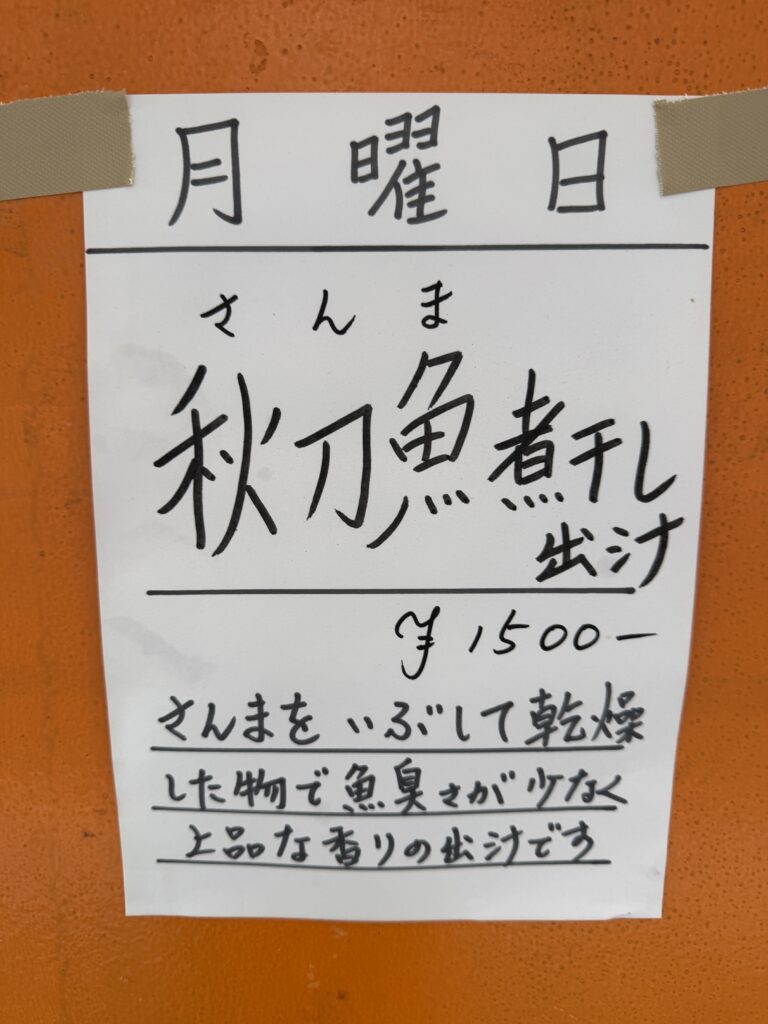 月曜日
さんま
秋刀魚煮干し
出汁
¥1500-
さんまをいぶして乾燥
した物で魚臭さが少なく
上品な香りの出汁です